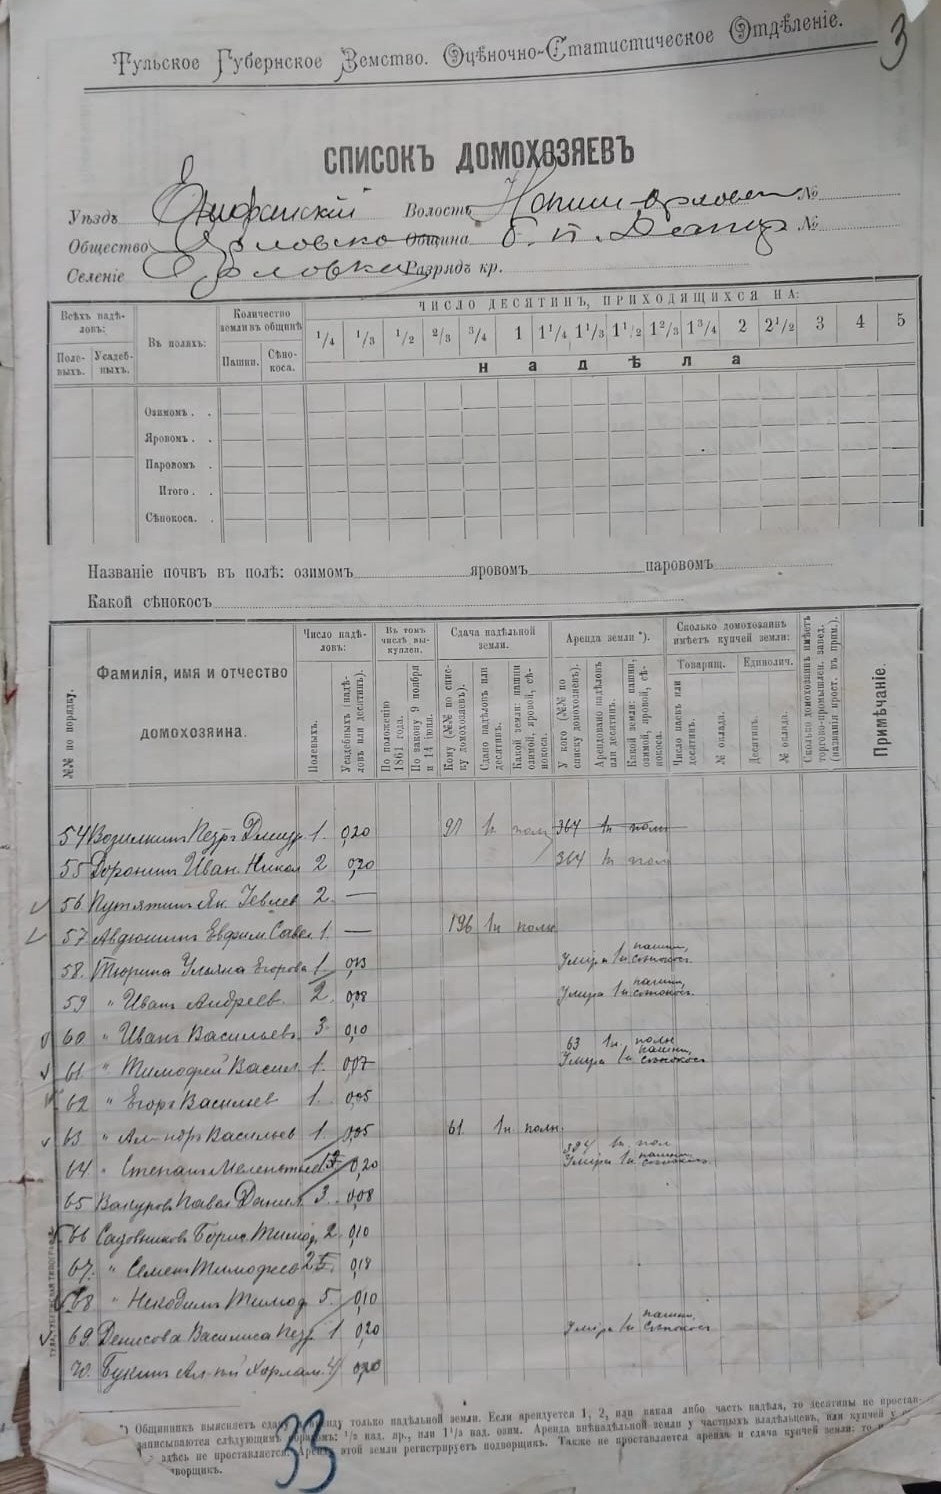 3
Тульское Губернское Земство. Оцѣночно-Статистическое Отдѣленіе.
СПИСОКЪ ДОМОХОЗЯЕВЪ
Уѣздъ Епифанскій Волость №
Общество Орловско Община б. п. №
Селеніе Орловка Разрядъ кр.
Всѣхъ надѣловъ:
Полевыхъ. Усадебныхъ.
Въ поляхъ:
Количество земли въ общинѣ
Пашни. Сѣнокоса.
ЧИСЛО ДЕСЯТИНЪ, ПРИХОДЯЩИХСЯ НА:
1/4 1/3 1/2 2/3 3/4 1 1 1/4 1 1/3 1 1/2 1 2/3 1 3/4 2 2 1/2 3 4 5
надѣла
Озимомъ . .
Яровомъ . .
Паровомъ .
Итого . .
Сѣнокоса. .
Названіе почвъ въ полѣ: озимомъ яровомъ паровомъ
Какой сѣнокосъ
№№ по порядку.
Фамилія, имя и отчество домохозяина.
Число надѣловъ:
Полевыхъ.
Усадебныхъ (надѣловъ или десятинъ).
Въ томъ числѣ выкуплен.
По положенію 1861 года.
По закону 9 ноября и 14 іюня.
Сдача надѣльной земли.
Кому (№№ по списку домохозяевъ).
Сдано надѣловъ или десятинъ.
Какой земли: пашни озимой, яровой, сѣнокоса.
Аренда земли *).
У кого (№№ по списку домохозяевъ).
Арендовано надѣловъ или десятинъ.
Какой земли: пашни, озимой, яровой, сѣнокоса.
Сколько домохозяинъ имѣетъ купчей земли:
Товарищ.
Число паевъ или десятинъ.
№ оклада.
Единолич.
Десятинъ.
№ оклада.
Сколько домохозяинъ имѣетъ торгово-промышлен. завед. (названія прост. въ прим.).
Примѣчаніе.
54 Петръ Дмитр 1. 0,20 1н полн 364 1н полн
55 Доронинъ Иван. Никол 2 0,20 364 1н пол
56 Путятинъ Як. Іевлев 2. —
57 Авдюнинъ Евфим Савел 1. — 196 1н полн
58. Тюрина Ульяна Егорова 1 1н пашни, сѣнокосъ
59 " Иванъ Андреев. 2. 0,08 1н пашни, сѣнокосъ
60 " Иванъ Васильевъ 3. 0,10
61 " Тимофей Васил 1. 0,07 63 1н полн 1н пашни, сѣнокосъ
62 " Егоръ Васильев 1. 0,05
63 " Ал-ндръ Васильев 1. 0,05 61 1н полн.
64 " Степанъ 0,20 1н пол 1н пашни, сѣнокосъ
65 Вакуровъ Павел Данил. 3. 0,08
66 Садовниковъ Борис Тимоф. 2 0,10
67. " Семенъ Тимофеев 0,18
68 " Никодимъ Тимоф. 5. 0,10
69. Денисова Василиса Петр 1 0,20 1н пашни, сѣнокосъ
70. Букинъ Ал-ѣй Харлам. 4 0,20
*) Общинникъ выясняетъ сдачу и аренду только надѣльной земли. Если арендуется 1, 2, или какая либо часть надѣла, то десятины не
записываются слѣдующимъ образомъ: 1/2 над. яр., или 1 1/2 над. озим. Аренда внѣнадѣльной земли у частныхъ владѣльцевъ, или купчей у
здѣсь не проставляется. Аренду этой земли регистрируетъ подворщикъ. Также не проставляется аренда и сдача купчей земли:
дворщикъ.
33